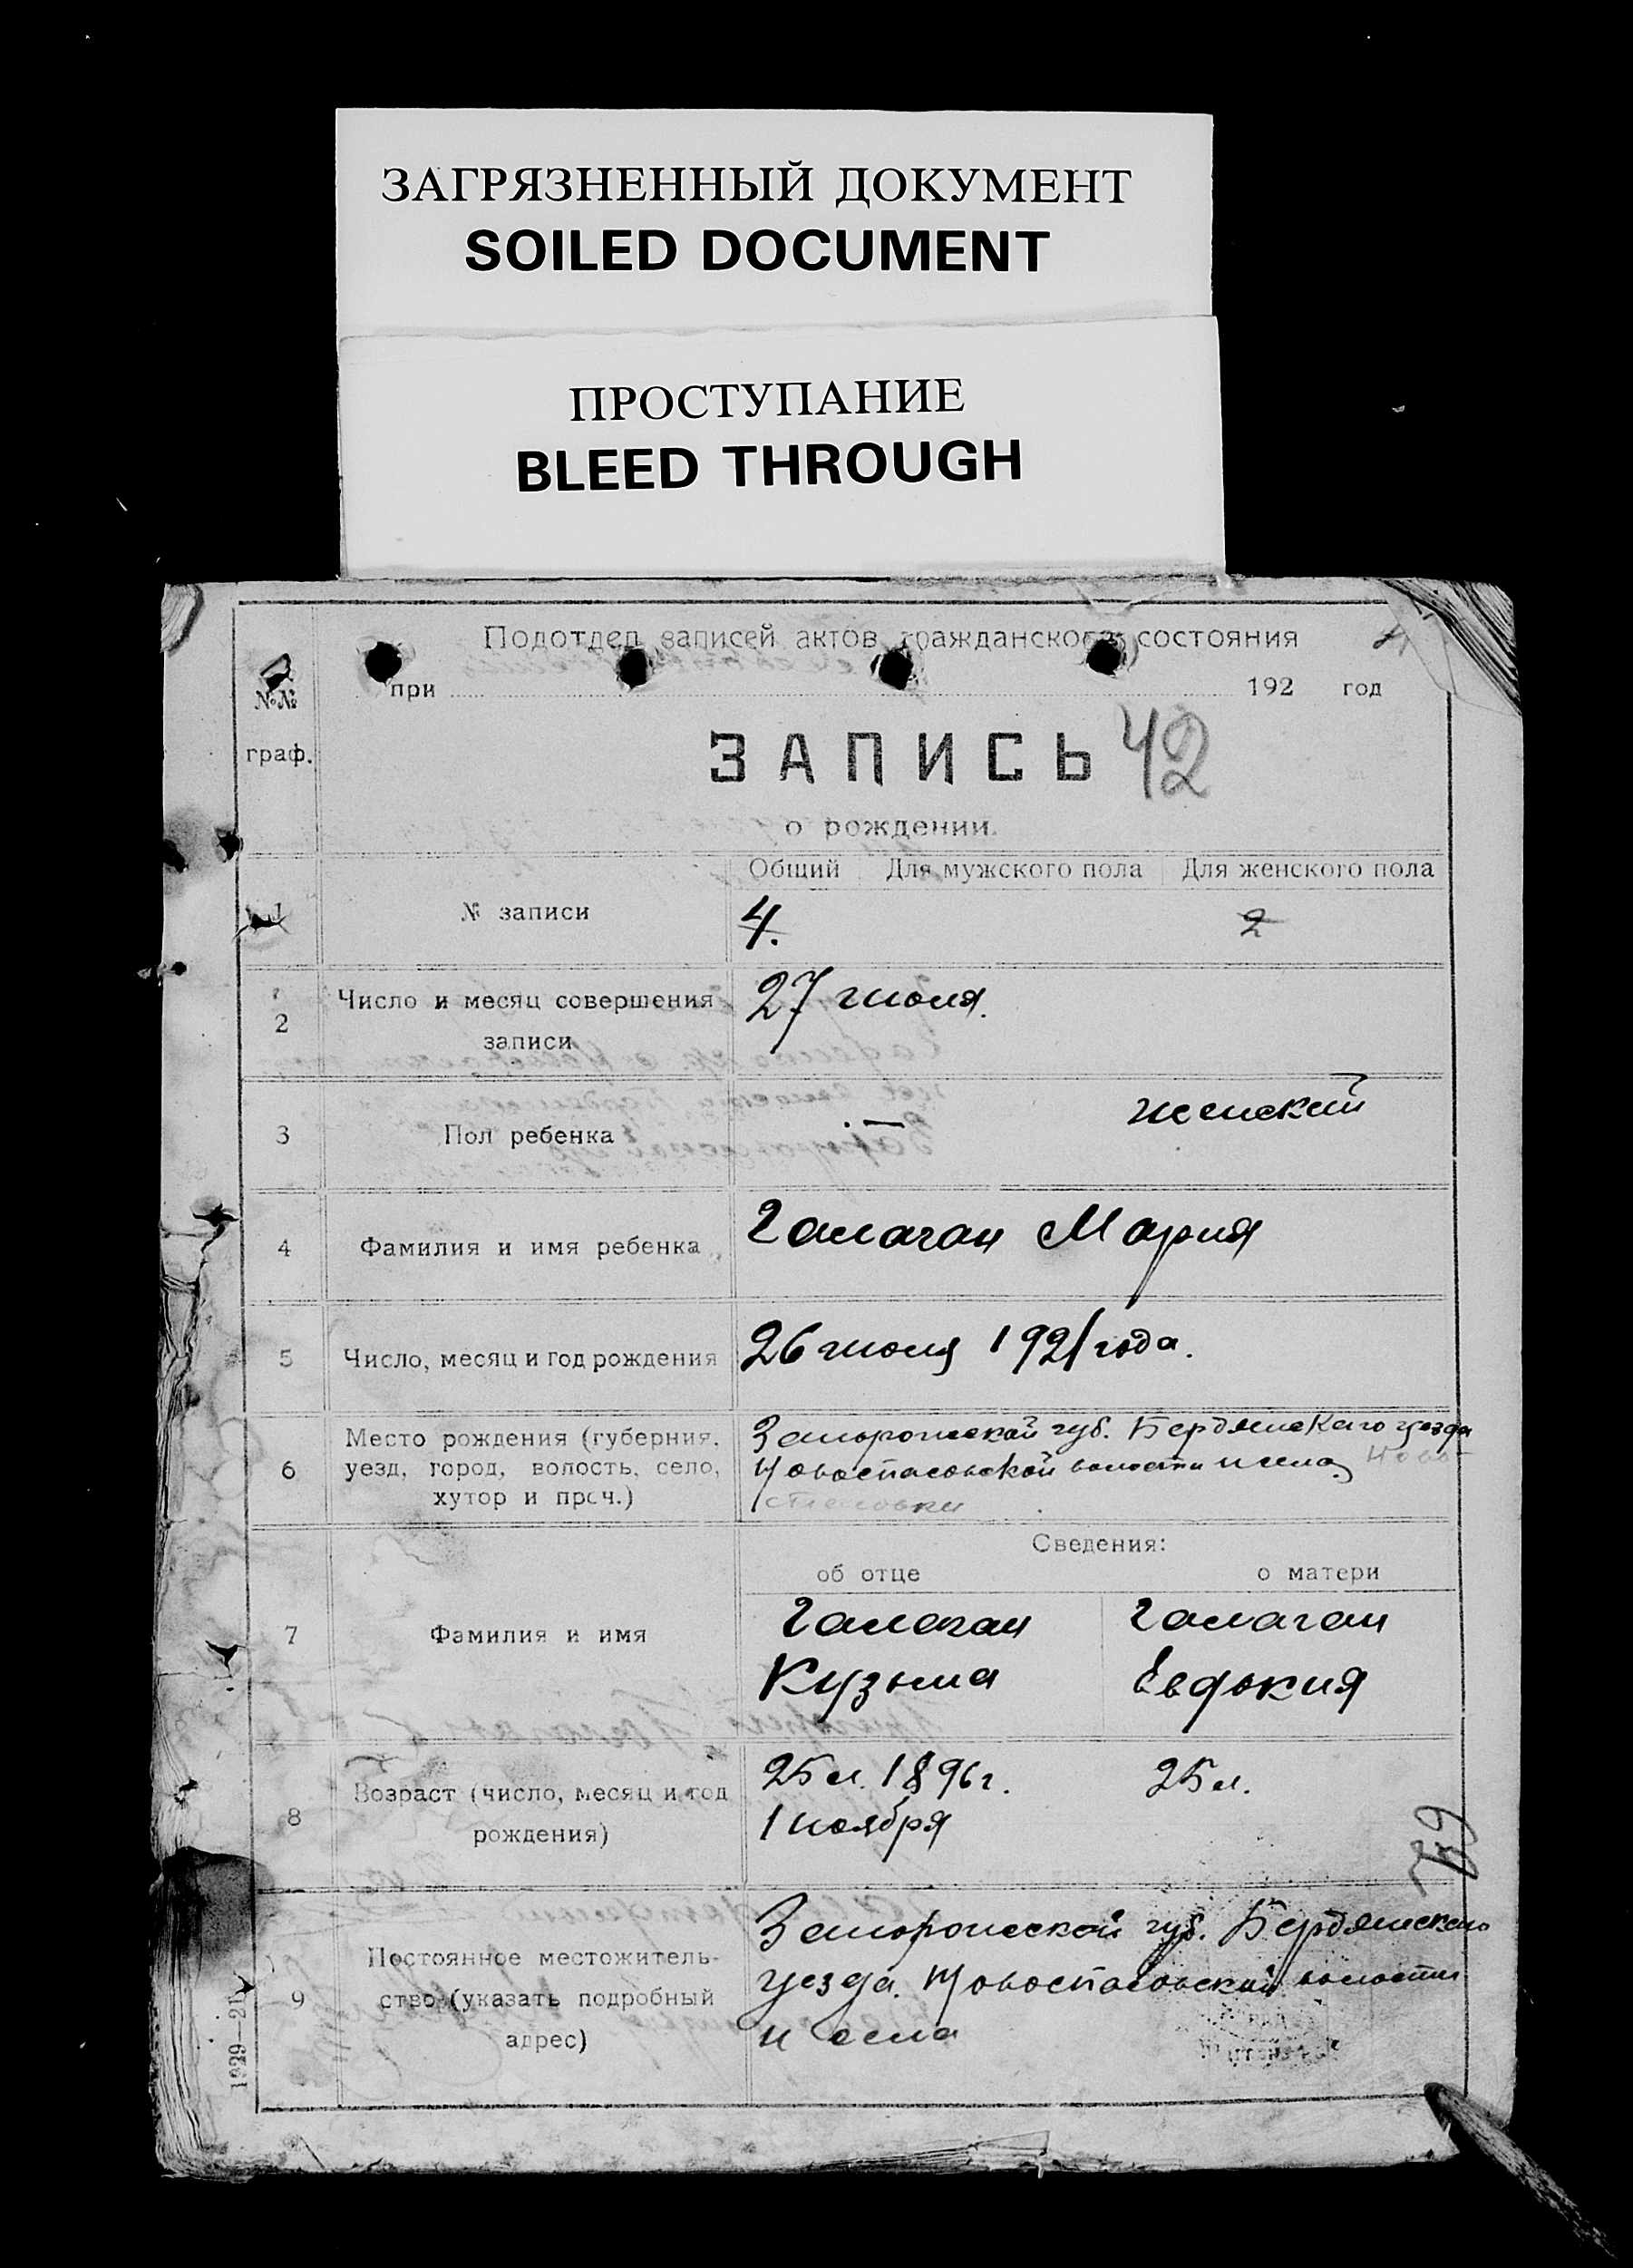 ЗАГРЯЗНЕННЫЙ ДОКУМЕНТ
SOILED DOCUMENT
ПРОСТУПАНИЕ
BLEED THROUGH
Подотдел записей актов гражданского состояния
№№ при 192 год
граф.
ЗАПИСЬ 42
о рождении.
Общий Для мужского пола Для женского пола
1 № записи 4. 2
2 Число и месяц совершения записи 27 июля.
3 Пол ребенка — женский
4 Фамилия и имя ребенка Галаган Мария
5 Число, месяц и год рождения 26 июля 1921 года.
6 Место рождения (губерния, Запорожской губ. Бердянскаго уезда
уезд, город, волость, село, Новоспасовской волости и села Ново
хутор и проч.) спасовки
Сведения:
об отце о матери
7 Фамилия и имя Галаган Галаган
Кузьма Евдокия
8 Возраст (число, месяц и год 25 л. 1896 г. 25 л.
рождения) 1 ноября
9 Постоянное местожитель- Запорожской губ. Бердянскаго
ство (указать подробный уезда. Новоспасовской волости
адрес) и села
1929—21